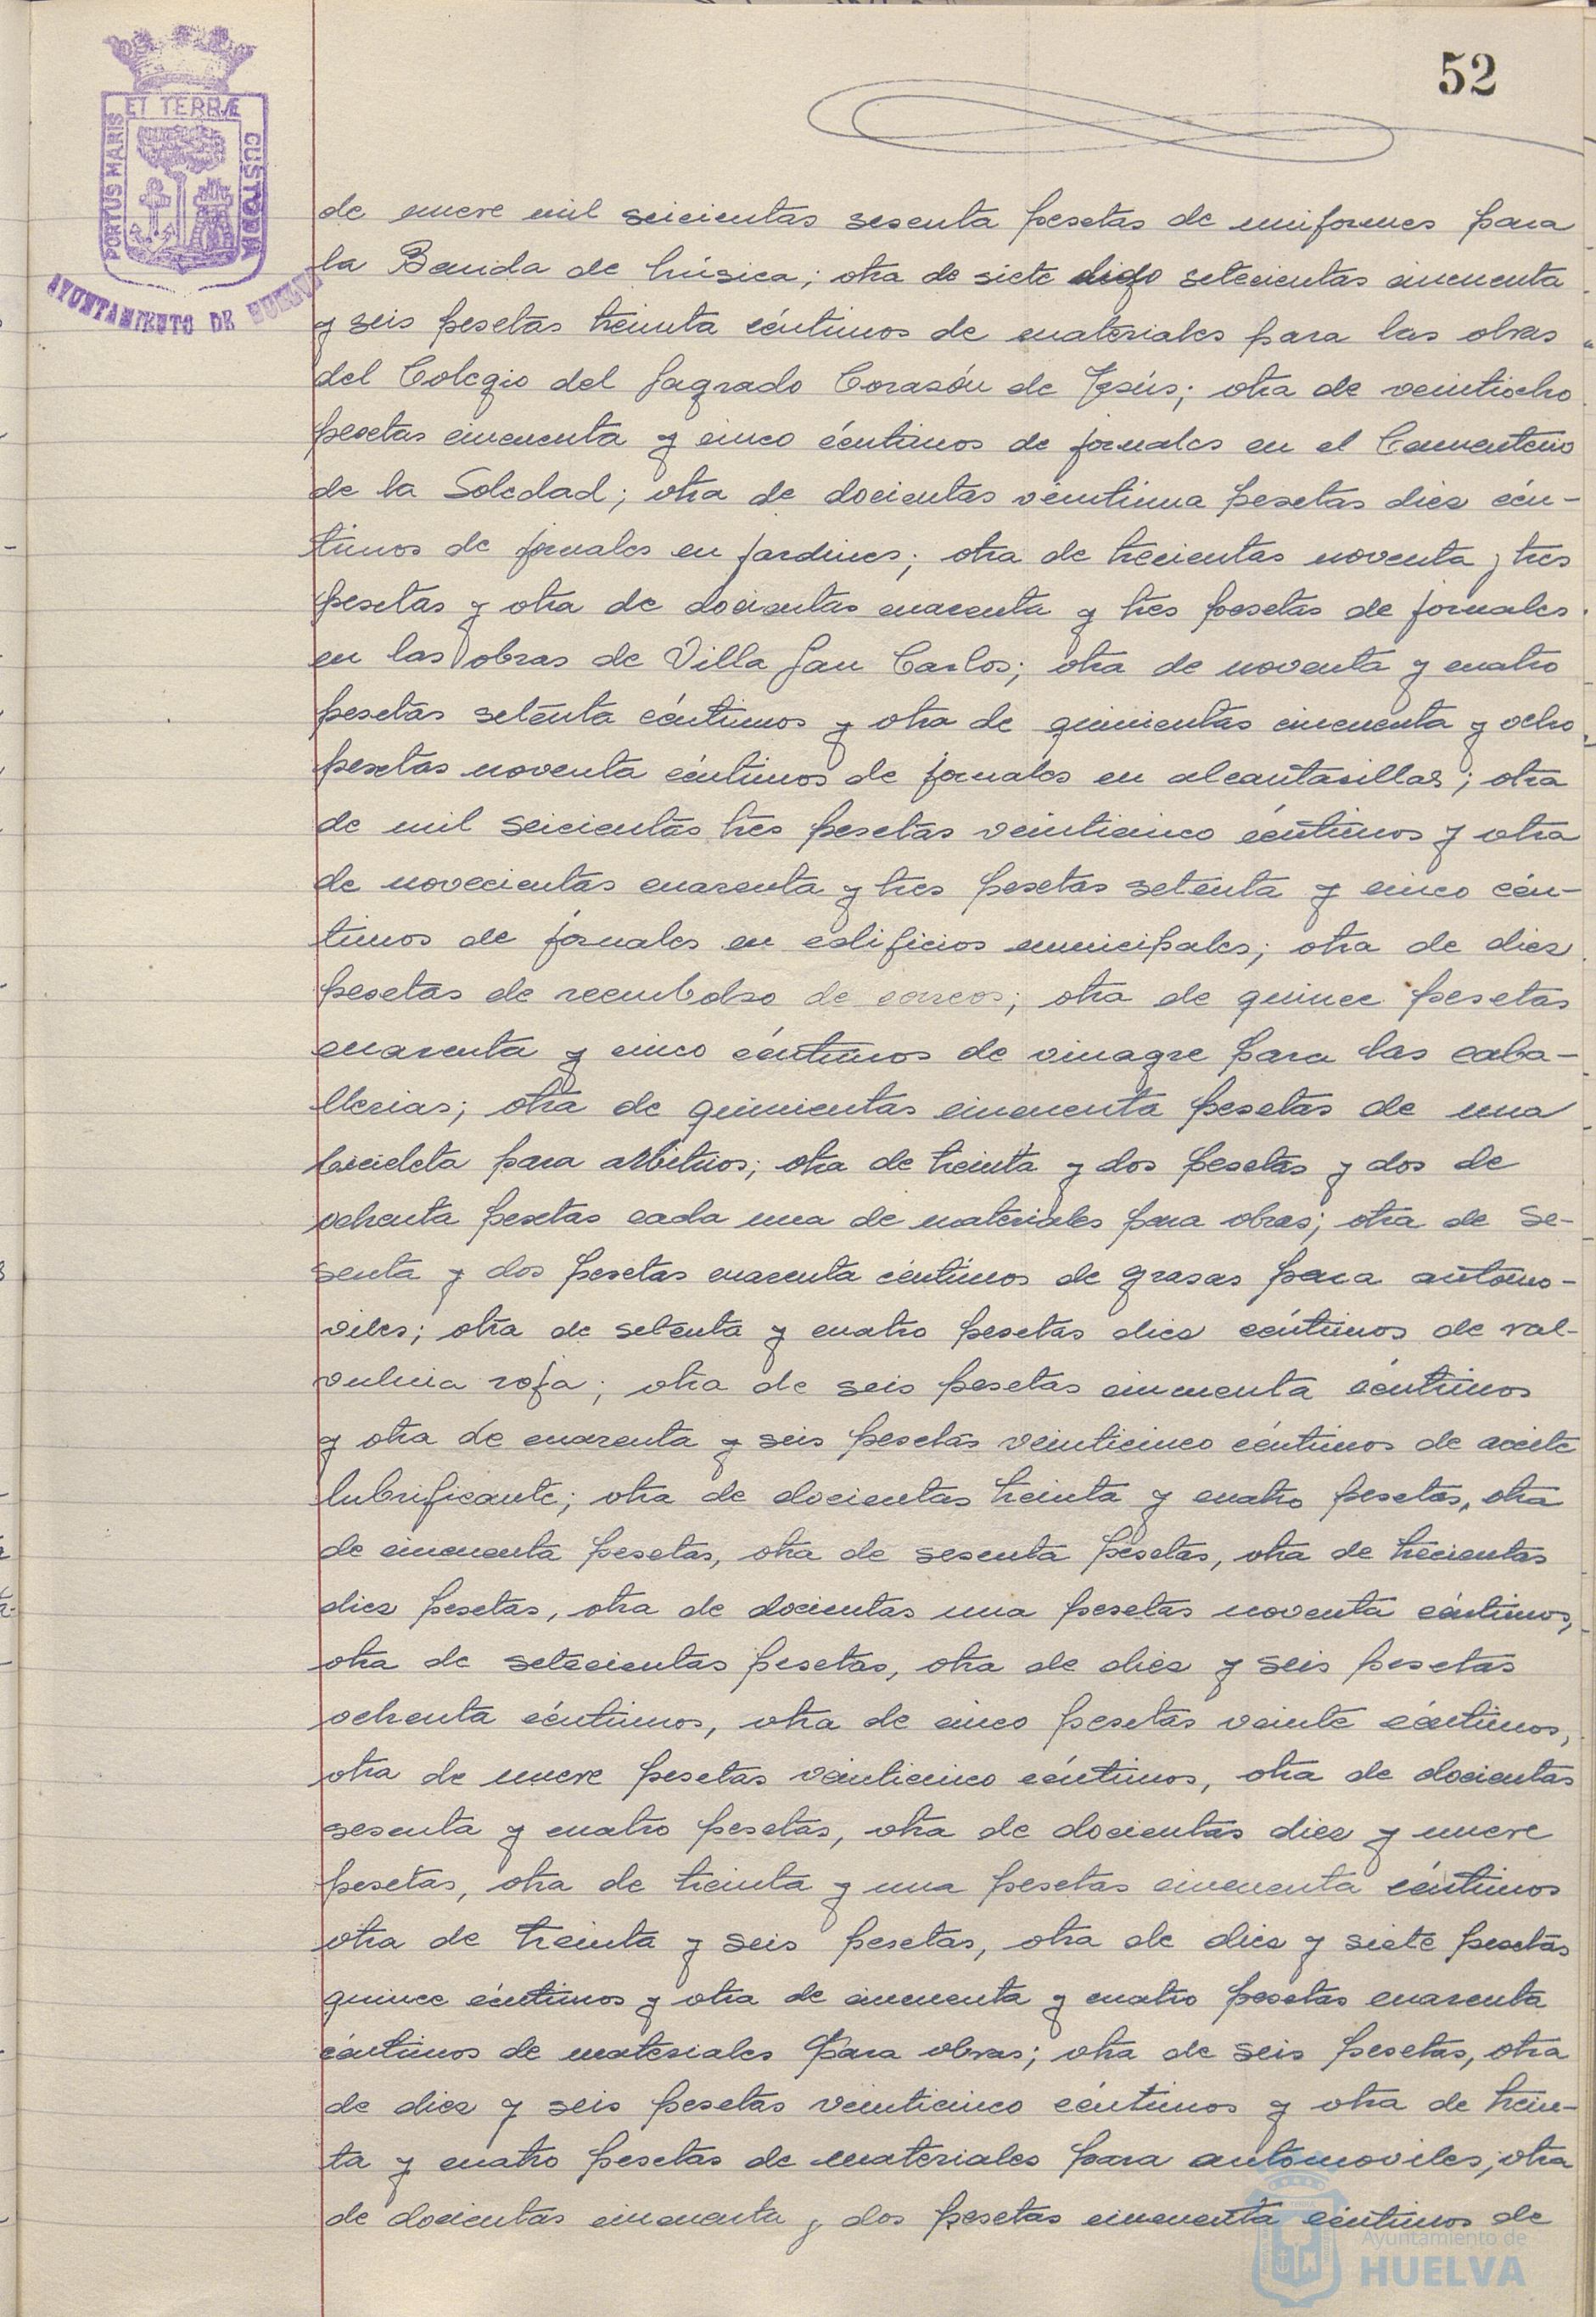 52
ET TERRÆ
PORTUS MARIS
CUSTODIA
AYUNTAMIENTO DE HUELVA
de nueve mil seicientas sesenta pesetas de uniformes para
la Banda de Música; otra de siete digo setecientas cincuenta
y seis pesetas treinta céntimos de materiales para las obras
del Colegio del Sagrado Corazón de Jesús; otra de veintiocho
pesetas cincuenta y cinco céntimos de jornales en el Cementerio
de la Soledad; otra de docientas veintiuna pesetas diez cén-
timos de jornales en jardines; otra de trecientas noventa y tres
pesetas y otra de docientas cuarenta y tres pesetas de jornales
en las obras de Villa San Carlos; otra de noventa y cuatro
pesetas setenta céntimos y otra de quinientas cincuenta y ocho
pesetas noventa céntimos de jornales en alcantarillas; otra
de mil seicientas tres pesetas veinticinco céntimos y otra
de novecientas cuarenta y tres pesetas setenta y cinco cén-
timos de jornales en edificios municipales; otra de diez
pesetas de reembolso de correos; otra de quince pesetas
cuarenta y cinco céntimos de vinagre para las caba-
llerias; otra de quinientas cincuenta pesetas de una
bicicleta para arbitrios; otra de treinta y dos pesetas y dos de
ochenta pesetas cada una de materiales para obras; otra de se-
senta y dos pesetas cuarenta céntimos de grasas para automo-
viles; otra de setenta y cuatro pesetas diez céntimos de val-
vulina roja; otra de seis pesetas cincuenta céntimos
y otra de cuarenta y seis pesetas veinticinco céntimos de aceite
lubrificante; otra de docientas treinta y cuatro pesetas, otra
de cincuenta pesetas, otra de sesenta pesetas, otra de trecientas
diez pesetas, otra de docientas una pesetas noventa céntimos,
otra de setecientas pesetas, otra de diez y seis pesetas
ochenta céntimos, otra de cinco pesetas veinte céntimos,
otra de nueve pesetas veinticinco céntimos, otra de docientas
sesenta y cuatro pesetas, otra de docientas diez y nueve
pesetas, otra de treinta y una pesetas cincuenta céntimos
otra de treinta y seis pesetas, otra de diez y siete pesetas
quince céntimos y otra de cincuenta y cuatro pesetas cuarenta
céntimos de materiales para obras; otra de seis pesetas, otra
de diez y seis pesetas veinticinco céntimos y otra de trein-
ta y cuatro pesetas de materiales para automoviles; otra
de docientas cincuenta y dos pesetas cincuenta céntimos de
Ayuntamiento de
HUELVA